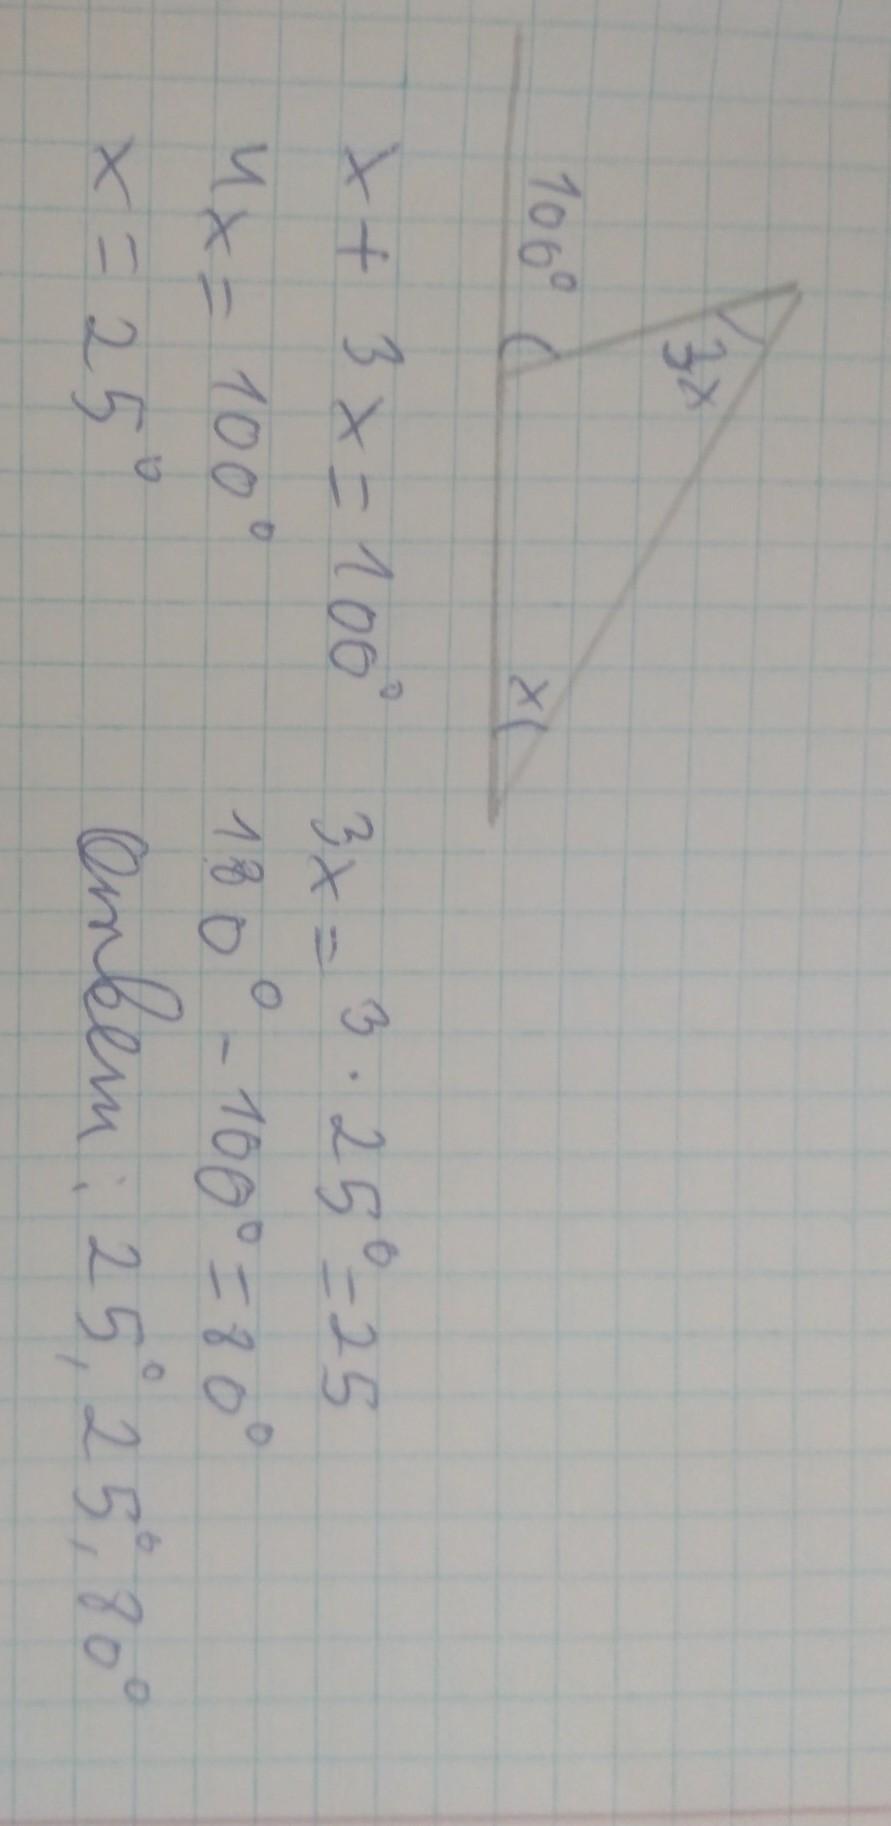 3x
100°
x
x + 3x = 100°
4x = 100°
x = 25°
3x = 3 · 25° = 25
180° - 100° = 80°
Ответ: 25°, 25°, 80°